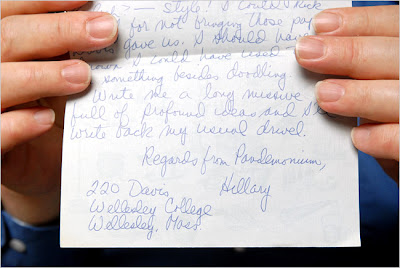 > — Style! I could kick
for not bringing those pa
gave us. I should have
I could have used
something besides doodling.
Write me a long missive
full of profound ideas and I'll
write back my usual drivel.
Regards from Pandemonium,
220 Davis Hillary
Wellesley College
Wellesley, Mass.